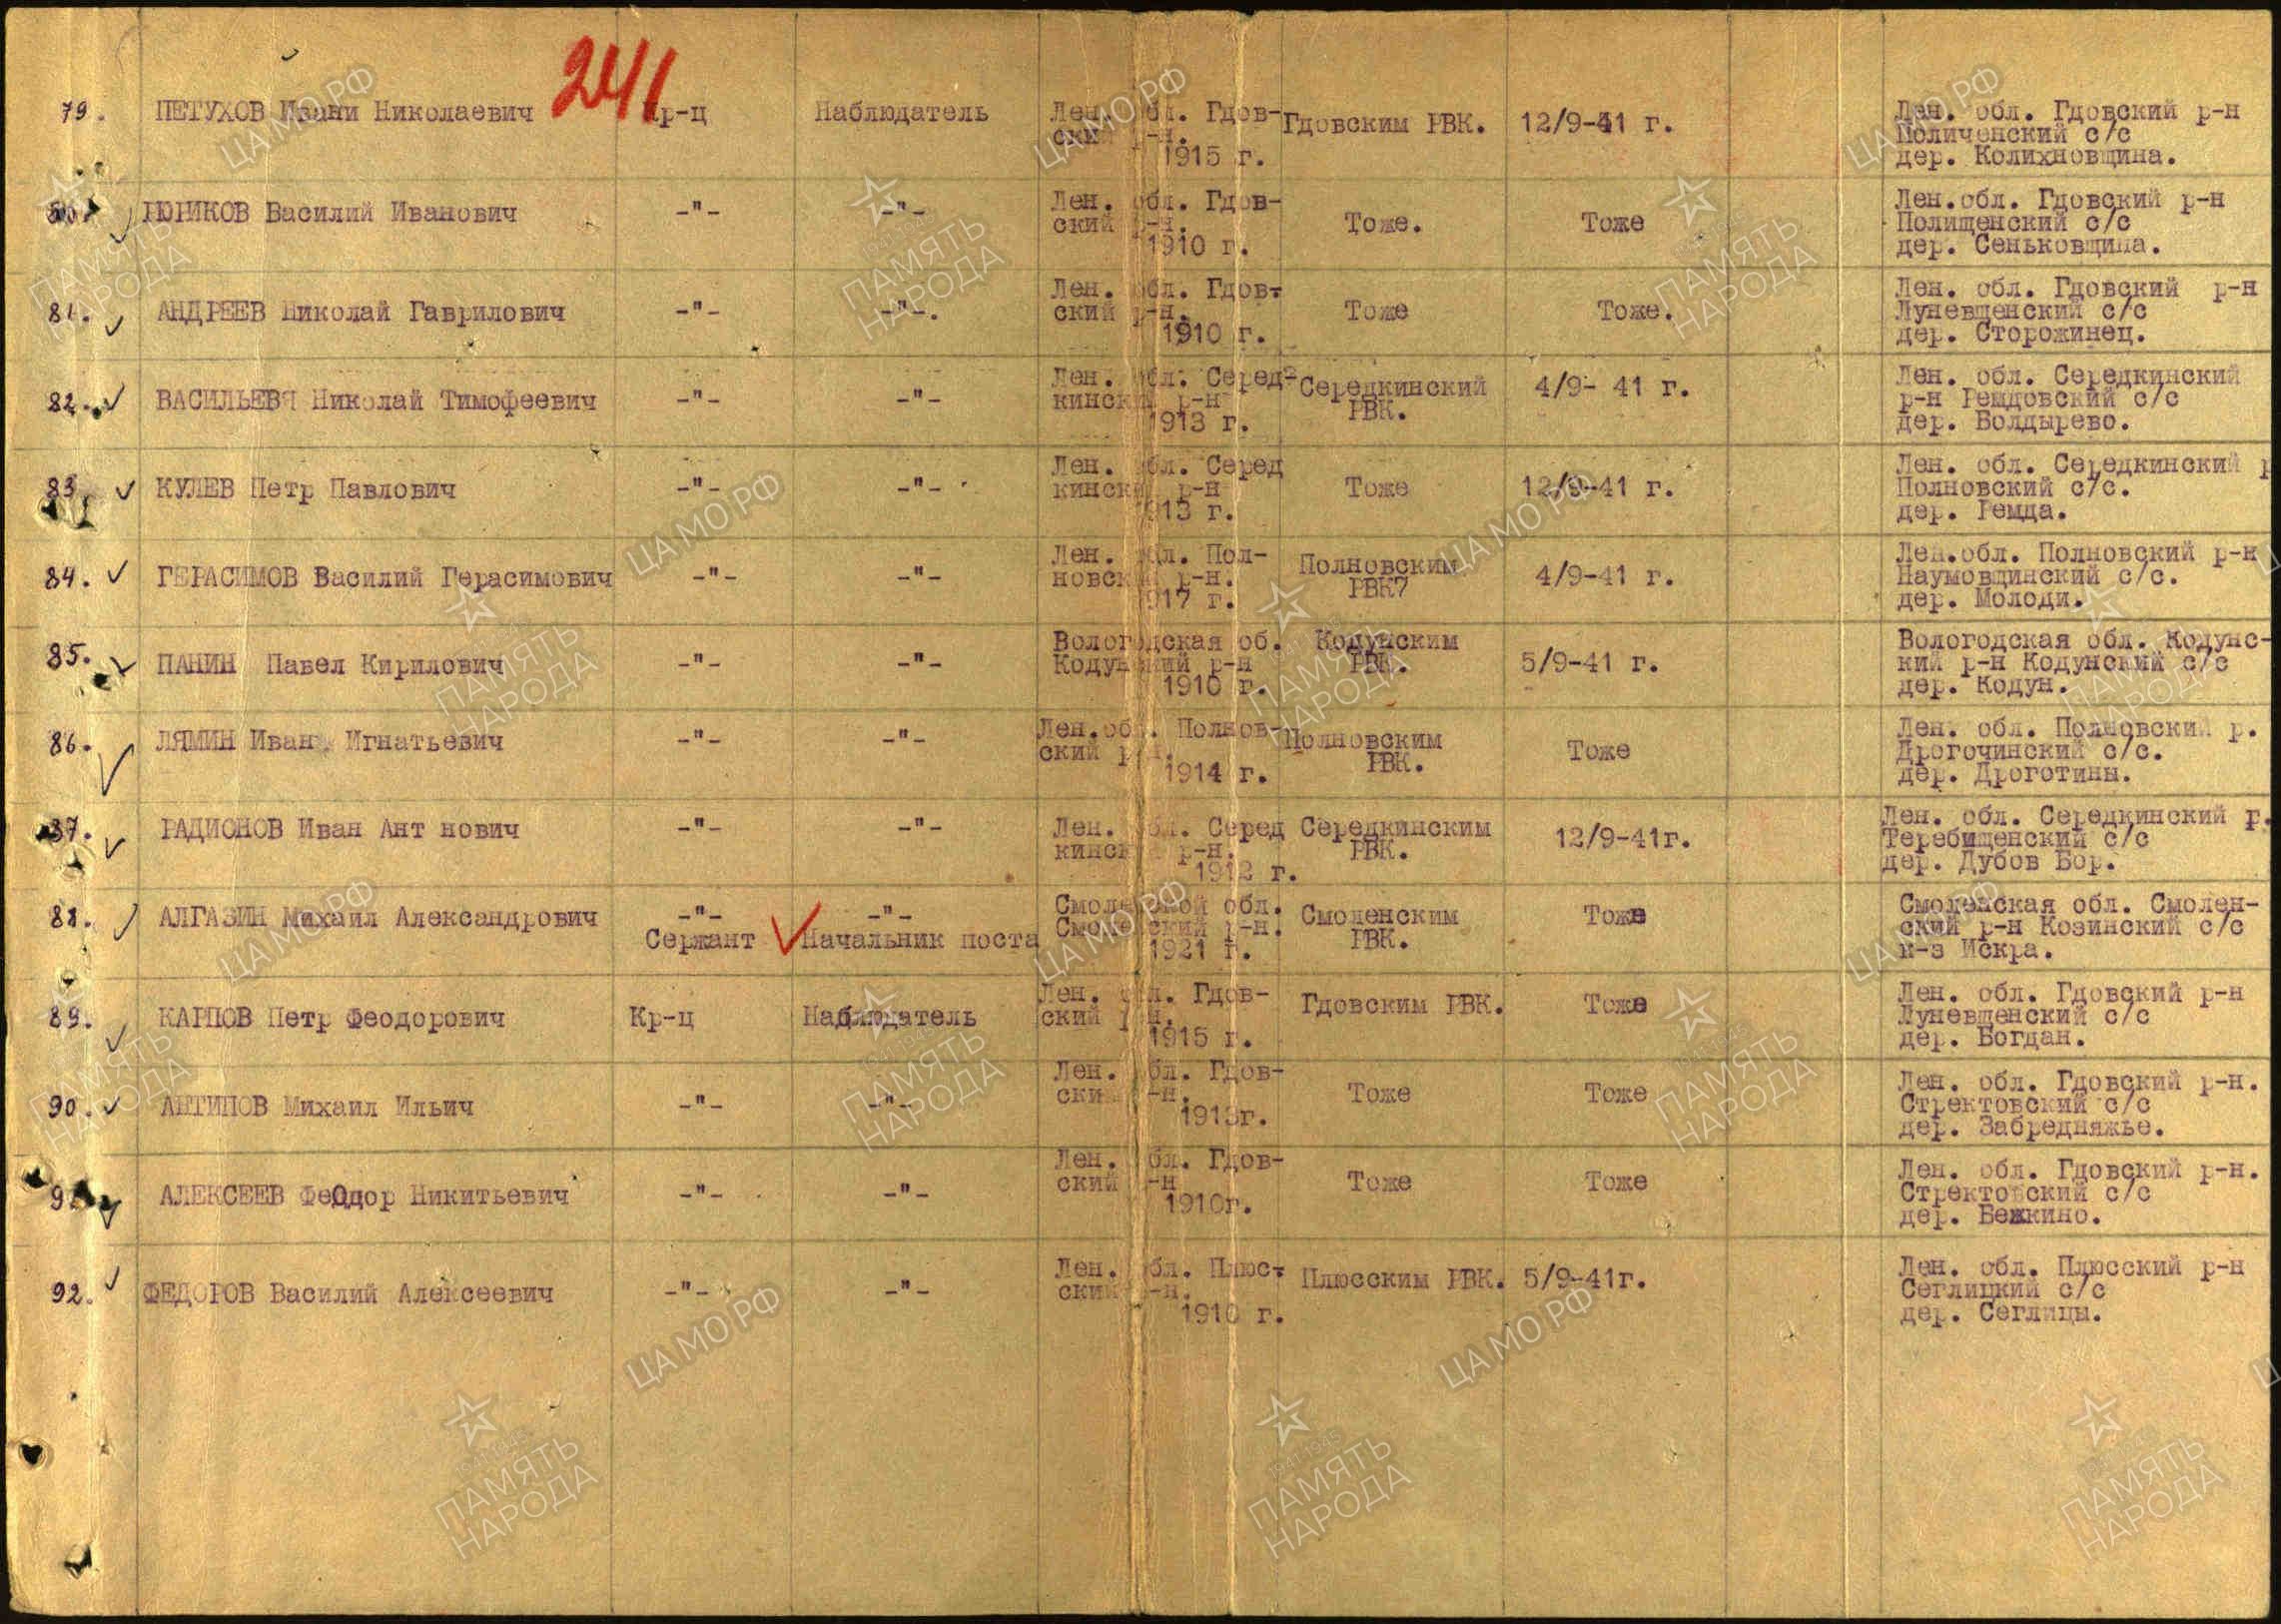 241
79. ПЕТУХОВ Ивани Николаевич Кр-ц Наблюдатель Лен. обл. Гдов- Гдовским РВК. 12/9-41 г. Лен. обл. Гдовский р-н
ский р-н. Поличенский с/с
1915 г. дер. Колихновщина.
80. РЮНИКОВ Василий Иванович -"- -"- Лен. обл. Гдов- Тоже. Тоже Лен.обл. Гдовский р-н
ский р-н. Полищенский с/с
1910 г. дер. Сеньковщина.
81. АНДРЕЕВ Николай Гаврилович -"- -"-. Лен. обл. Гдов- Тоже Тоже. Лен. обл. Гдовский р-н
ский р-н. Луневщенский с/с
1910 г. дер. Сторожинец.
82. ВАСИЛЬЕВЯ Николай Тимофеевич -"- -"- Лен. обл. Серед- Середкинский 4/9- 41 г. Лен. обл. Середкинский
кинский р-н РВК. р-н Ремдовский с/с
1913 г. дер. Болдырево.
83. КУЛЕВ Петр Павлович -"- -"- Лен. обл. Серед Тоже 12/9-41 г. Лен. обл. Середкинский р
кинский р-н Полновский с/с.
1913 г. дер. Ремда.
84. ГЕРАСИМОВ Василий Герасимович -"- -"- Лен. обл. Пол- Полновским 4/9-41 г. Лен.обл. Полновский р-н
новский р-н. РВК7 Наумовщинский с/с.
1917 г. дер. Молоди.
85. ПАНИН Павел Кирилович -"- -"- Вологодская об. Кодунским 5/9-41 г. Вологодская обл. Кодунс-
Кодунский р-н РВК. кий р-н Кодунский с/с
1910 г. дер. Кодун.
86. ЛЯМИН Иван Игнатьевич -"- -"- Лен.обл. Полнов- Полновским Тоже Лен. обл. Полновский р.
ский р-н. РВК. Дрогочинский с/с.
1914 г. дер. Дроготины.
87. РАДИОНОВ Иван Ант нович -"- -"- Лен. обл. Серед Середкинским 12/9-41г. Лен. обл. Середкинский р.
кинский р-н. РВК. Теребищенский с/с
1912 г. дер. Дубов Бор.
88. АЛГАЗИН Михаил Александрович -"- -"- Смоленской обл. Смоленским Тоже Смоленская обл. Смолен-
Сержант Начальник поста Смоленский р-н. РВК. ский р-н Козинский с/с
1921 г. к-з Искра.
89. КАРПОВ Петр Феодорович Кр-ц Наблюдатель Лен. обл. Гдов- Гдовским РВК. Тоже Лен. обл. Гдовский р-н
ский р-н. Луневщенский с/с
1915 г. дер. Богдан.
90. АНТИПОВ Михаил Ильич -"- -"- Лен. обл. Гдов- Тоже Тоже Лен. обл. Гдовский р-н.
ский р-н. Стректовский с/с
1913г. дер. Забредняжье.
91. АЛЕКСЕЕВ Феодор Никитьевич -"- -"- Лен. обл. Гдов- Тоже Тоже Лен. обл. Гдовский р-н.
ский р-н Стректовский с/с
1910г. дер. Бежкино.
92. ФЕДОРОВ Василий Алексеевич -"- -"- Лен. обл. Плюс- Плюсским РВК. 5/9-41г. Лен. обл. Плюсский р-н
ский р-н. Сеглицкий с/с
1910 г. дер. Сеглицы.